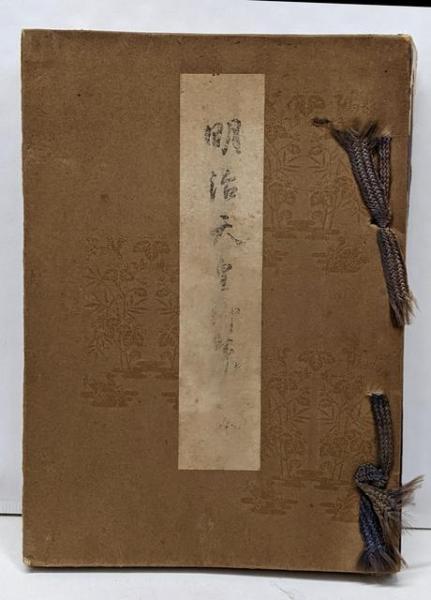 明治天皇御集